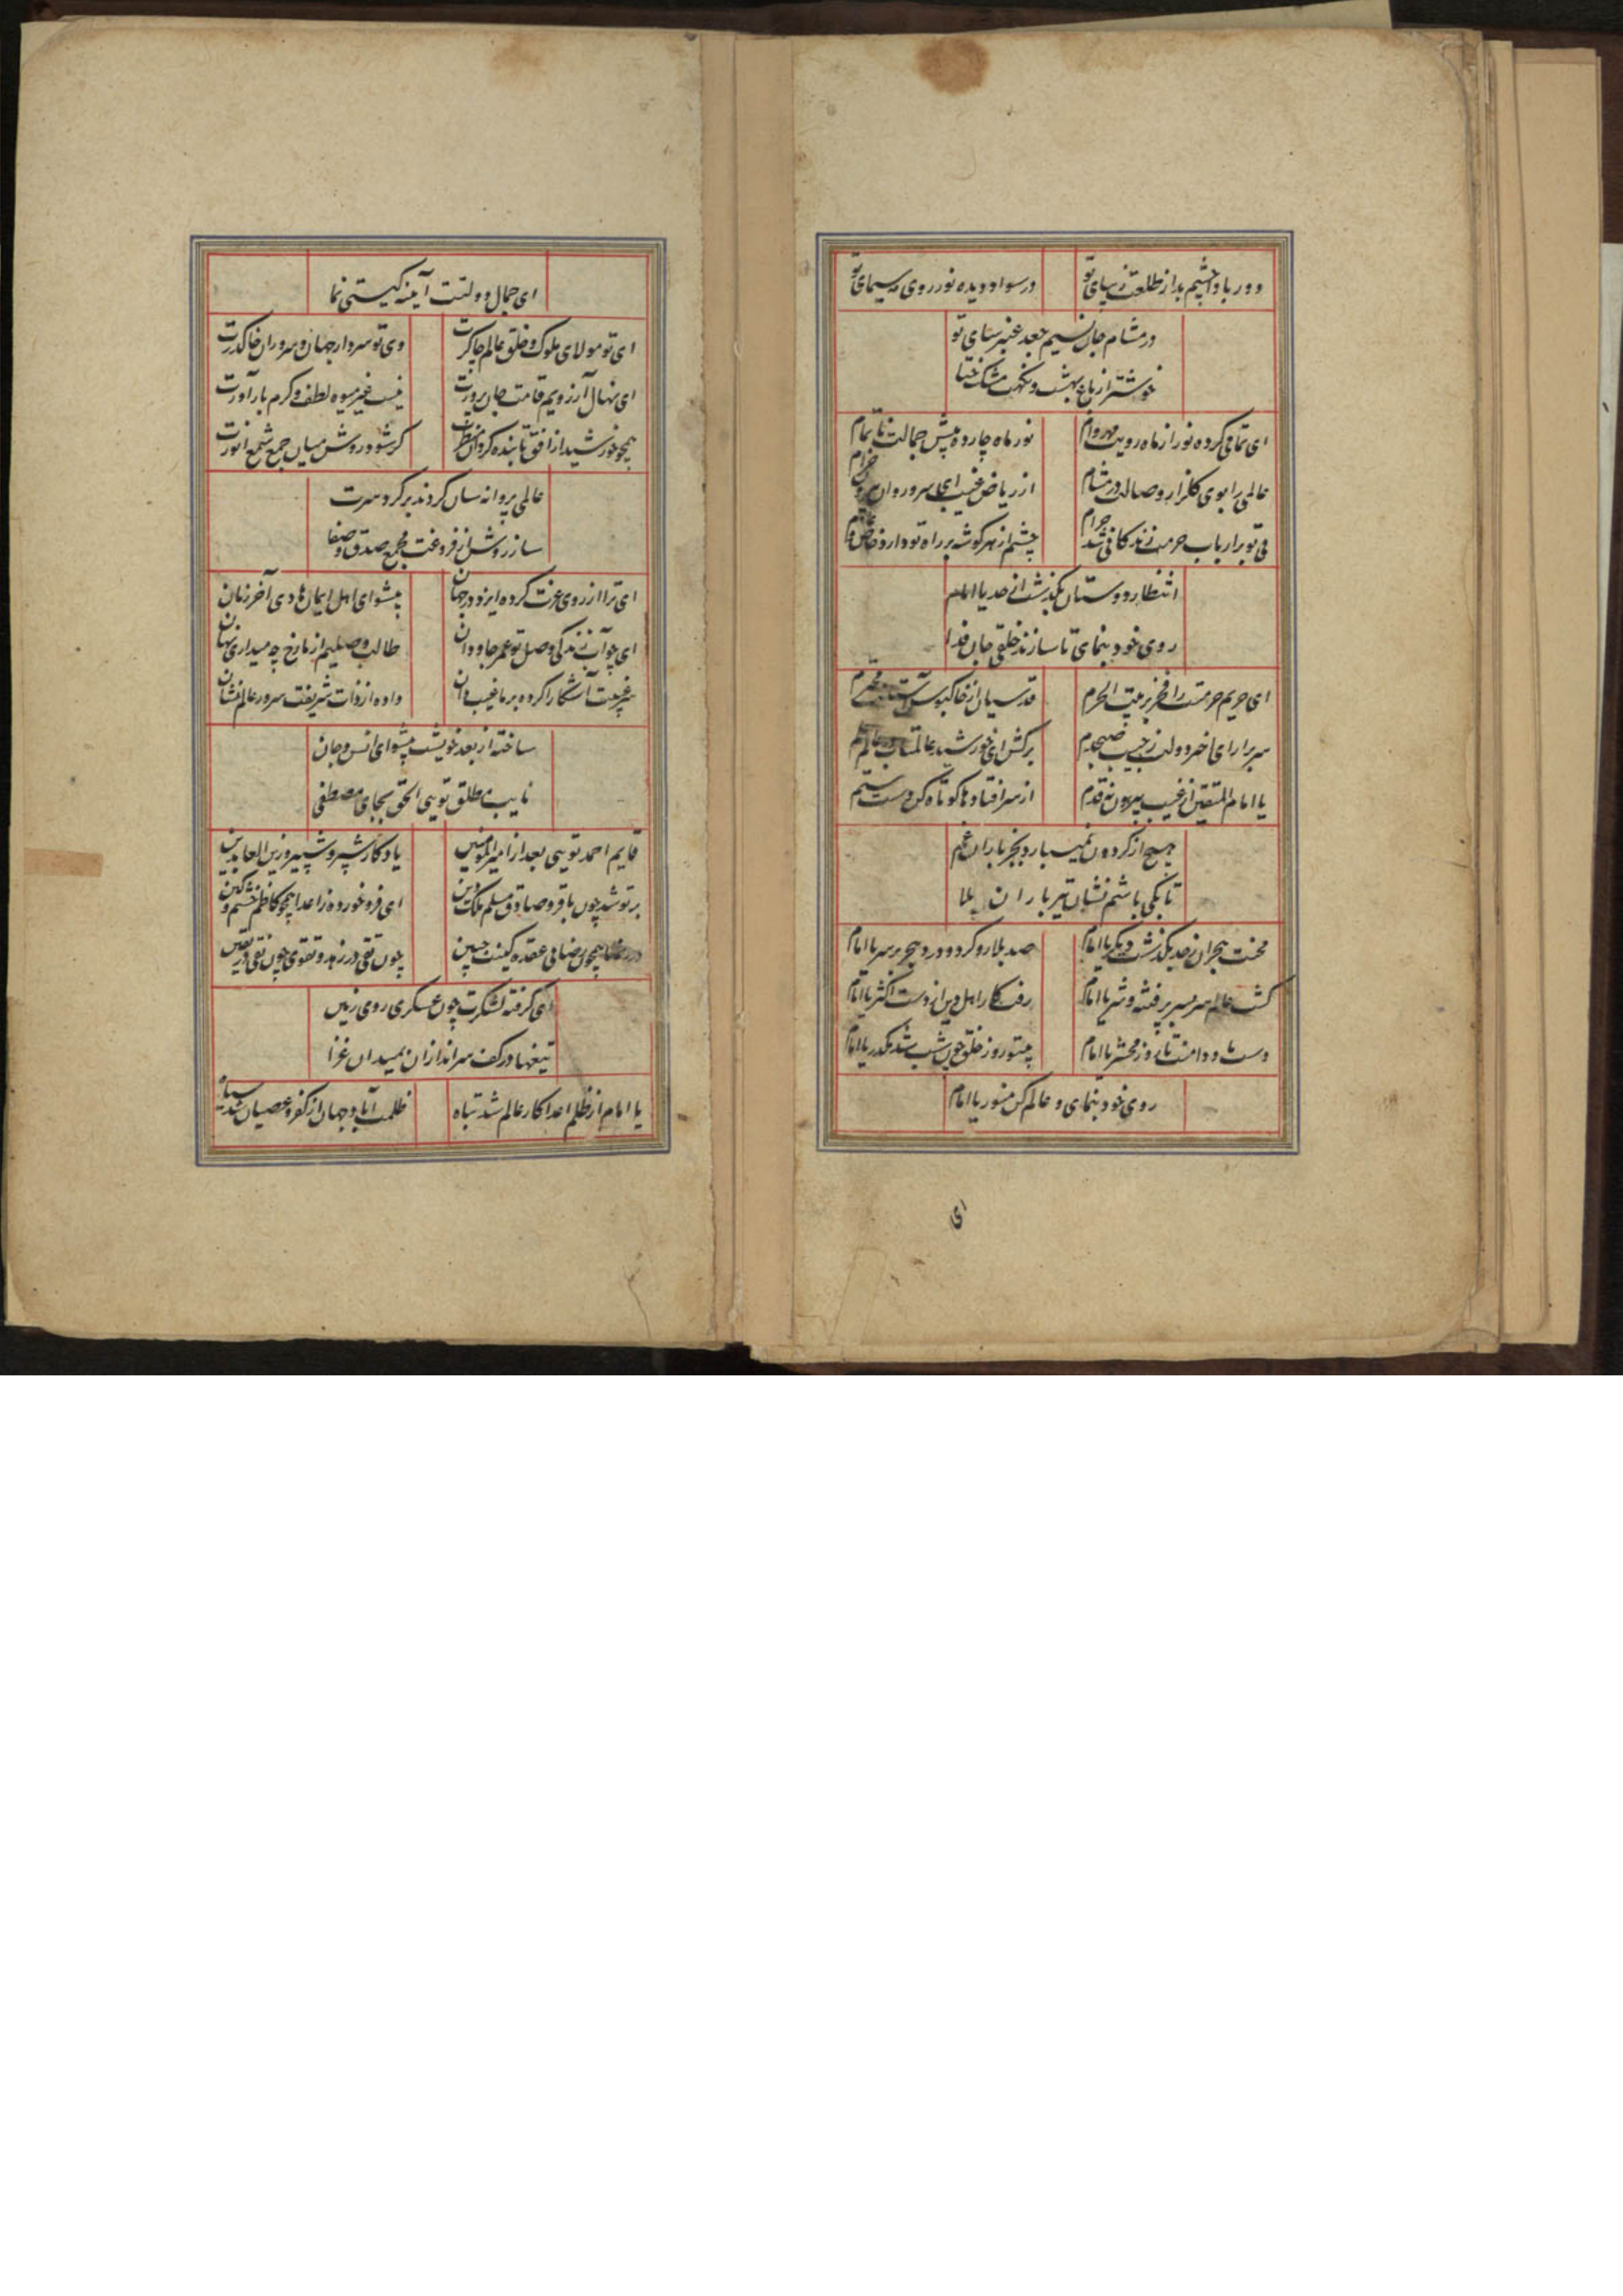 دور بادا چشم بد از طلعت زیبای تو
در سواد دیده نور روی مه سیمای تو
در مشام جان نسیم جعد عنبر سای تو
خوشتر از باغ بهشت و نکهت مشک ختا
ای تمامی کرده نور از ماه رویت مهر وام
نور ماه چارده پیش جمالت ناتمام
عالمی را بوی گلزار وصالت در مشام
از ریاض غیب ای سرو روان بیرون خرام
بی تو بر ارباب حرمت زندگانی شد حرام
چشم از هر گوشه بر راه تو دارد خاص و عام
انتظار دوستان بگذشت از حد یا امام
روی خود بنمای تا سازند خلقی جان فدا
ای حریم حرمتت را فخر بر بیت الحرم
قدسیان از خاکبوس آستانت محترم
سر برار ای اختر دولت ز جیب صبحدم
برکش ای خورشید عالمتاب در عالم علم
یا امام المتقین از غیب بیرون نه قدم
از سر افتادها کوتاه کن دست ستم
هیچ از گردون نمیبارد بجز باران غم
تا بکی باشم نشان تیر باران بلا
محنت هجران ز حد بگذشت دیگر یا امام
صد بلا رو کرد و درد هجر بر سر یا امام
گشت عالم سر بسر پر فتنه و شر یا امام
رفت کار اهل دین از دست اکثر یا امام
دست ما و دامنت تا روز محشر یا امام
بیتو روز خلق چون شب شد مکدر یا امام
روی خود بنمای و عالم کن منور یا امام
ای
ای جمال دولتت آیینه گیتی نما
ای تو مولای ملوک و خلق عالم چاکرت
وی تو سردار جهان و سروران خاک درت
ای نهال آرزویم قامت جان پرورت
نیست غیر میوه لطف و کرم بار آورت
همچو خورشید از افق تابنده گردان منظرت
گر شود روشن میان جمع شمع انورت
عالمی پروانه سان گردند بر گرد سرت
ساز روشن از فروغت مجمع صدق و صفا
ای ترا از روی عزت کرده ایزد در جهان
پیشوای اهل ایمان هادی آخر زمان
ای چو آب زندگی وصل تو عمر جاودان
طالب وصلیم از ما رخ چه میداری نهان
سر غیبت آشکارا کرده بر ما غیب دان
داده از ذات شریفت سرور عالم نشان
ساخته از بعد خویشت پیشوای انس و جان
نایب مطلق تویی الحق بجای مصطفی
قایم احمد تویی بعد از امیر المؤمنین
یادگار شبر و شبیر و زین العابدین
بر تو شد چون باقر و صادق مسلم ملک دین
ای فرو خورده ز اعدا همچو کاظم خشم و کین
همچون رضا بی عقده کینت جبین
چون تقی در زهد و تقوی چون نقی در یقین
ای گرفته لشکرت چون عسکری روی زمین
تیغها در کف سر اندازان بمیدان غزا
یا امام از ظلم اعدا کار عالم شد تباه
ظلمت آباد جهان از کفر و عصیان شد سیاه